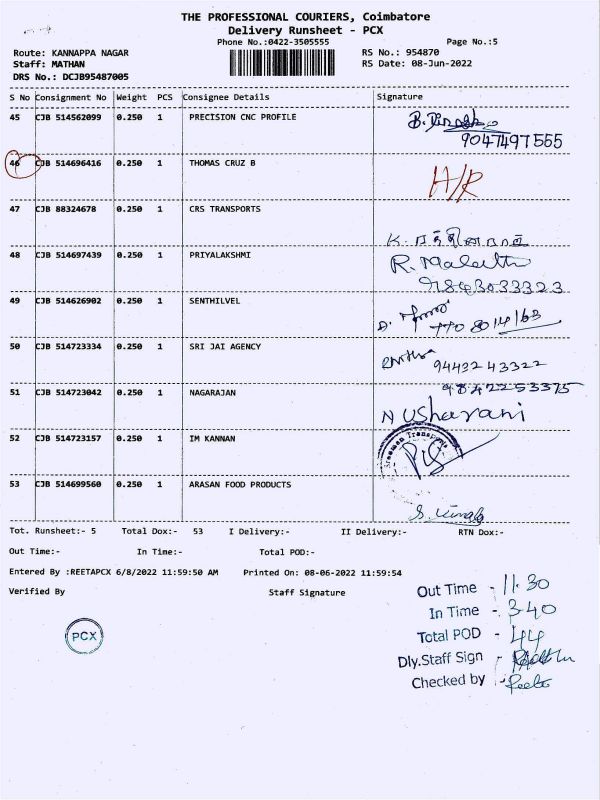 THE PROFESSIONAL COURIERS, Coimbatore
Delivery Runsheet - PCX
Phone No.:0422-3505555
Page No.:5
Route: KANNAPPA NAGAR
RS No.: 954870
Staff: MATHAN
RS Date: 08-Jun-2022
DRS No.: DCJB95487005
S No Consignment No Weight PCS Consignee Details Signature
45 CJB 514562099 0.250 1 PRECISION CNC PROFILE
9047497555
46 CJB 514696416 0.250 1 THOMAS CRUZ B H/R
47 CJB 88324678 0.250 1 CRS TRANSPORTS
48 CJB 514697439 0.250 1 PRIYALAKSHMI R. Malathi
9843033323
49 CJB 514626902 0.250 1 SENTHILVEL
50 CJB 514723334 0.250 1 SRI JAI AGENCY 94432 43322
9842253375
51 CJB 514723042 0.250 1 NAGARAJAN N Usharani
52 CJB 514723157 0.250 1 IM KANNAN
53 CJB 514699560 0.250 1 ARASAN FOOD PRODUCTS
Tot. Runsheet:- 5 Total Dox:- 53 I Delivery:- II Delivery:- RTN Dox:-
Out Time:- In Time:- Total POD:-
Entered By :REETAPCX 6/8/2022 11:59:50 AM Printed On: 08-06-2022 11:59:54
Verified By Staff Signature
Out Time - 11.30
In Time - 3.40
PCX
Total POD - 44
Dly.Staff Sign -
Checked by -